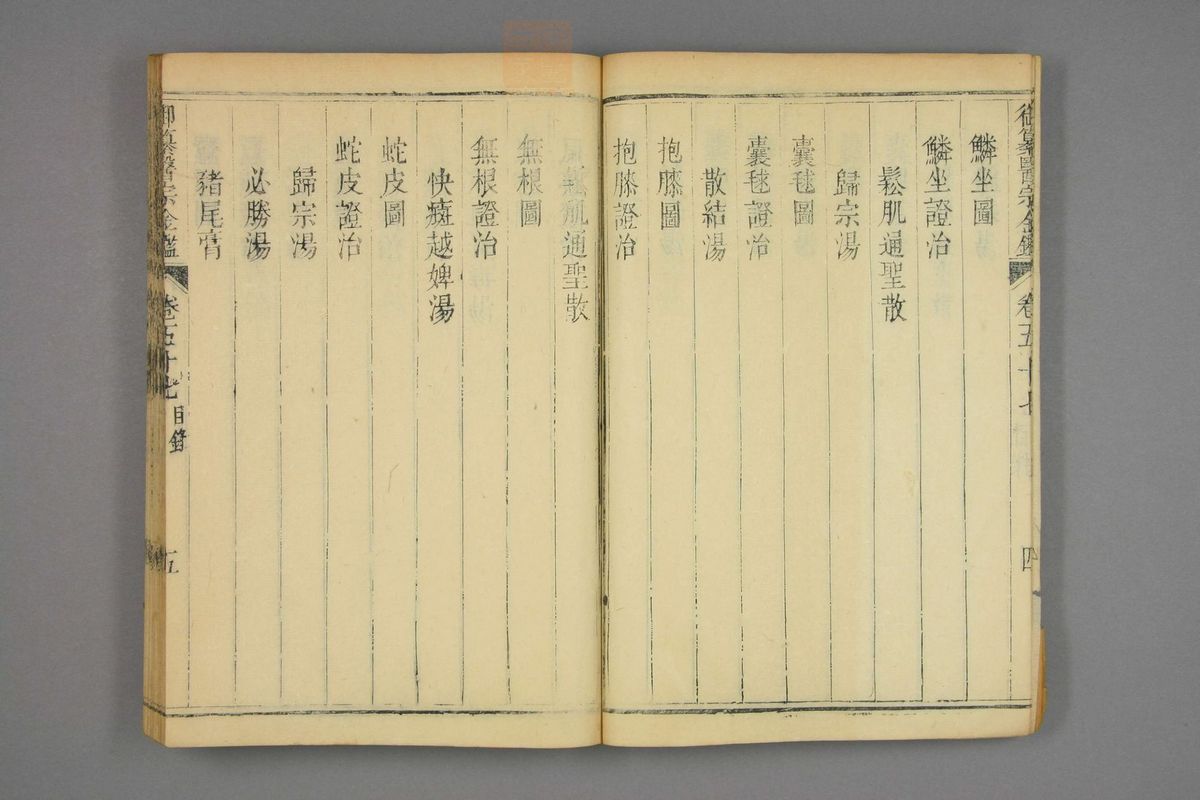 御纂醫宗金鑑 卷五十七 四
鱗坐圖
鱗坐證治
鬆肌通聖散
歸宗湯
囊毬圖
囊毬證治
散結湯
抱膝圖
抱膝證治
鬆肌通聖散
無根圖
無根證治
快癍越婢湯
蛇皮圖
蛇皮證治
歸宗湯
必勝湯
豬尾膏
御纂醫宗金鑑 卷五十七 目錄 五